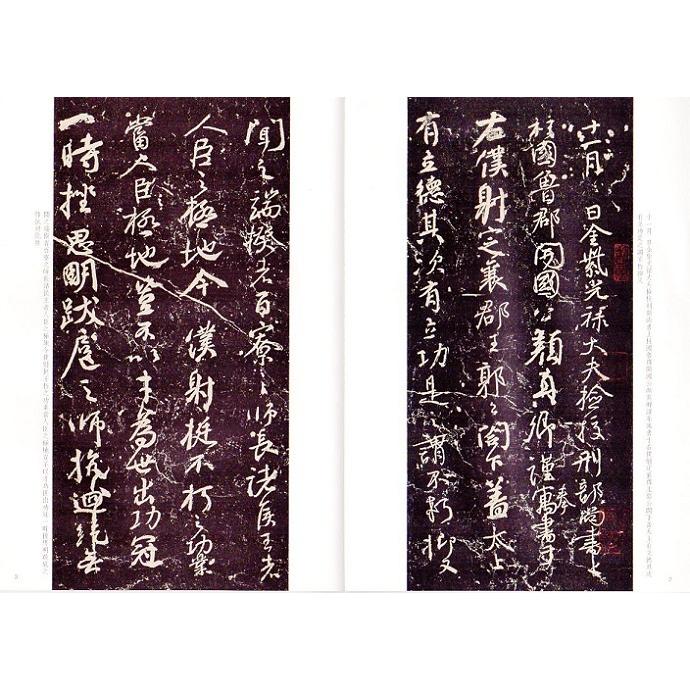 十一月日金紫光禄大夫检校刑部尚書上
柱國魯郡開國公顔真卿謹奉寓書于
右僕射定襄郡王郭公閤下蓋太上
有立德其次有立功是之謂不朽抑又
聞之端揆者百寮之師長諸侯王者
人臣之極地今僕射挺不朽之功業
當人臣極地豈不以才為世出功冠
一時挫思明跋扈之師抗迴紇無